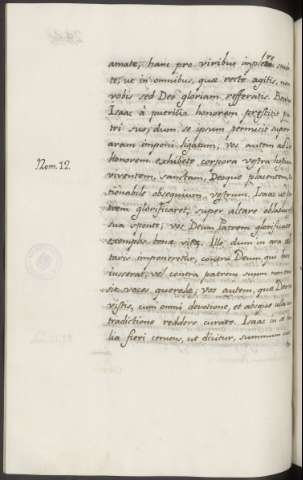 amate, hanc pro viribus implere
te, ut in omnibus, quæ recte agitis, non
vobis sed Deo gloriam refferatis.
Isaac à pueritia honorem præstitit pa
tri suo, dum se ipsum permisit super
aram imponi ligatum, vos autem ad
honorem exhibete corpora vestra hostiam
viventem, sanctam, Deoque placentem,
tionabile obsequium vestrum. Isaac ut
trem glorificaret, super altare oblatus
sua sponte; vos Deum Patrem glorificate
exemplo bonæ vitæ. Ille, dum in ara
taris imponeretur, contra Deum, qui hoc
iusserat, vel contra patrem suum non
sit voces querelæ; vos autem, quæ Deo
vistis, cum omni devotione, et absque ulla
tradictione reddere curate. Isaac in
lia fieri cernens, ut dicitur, summum
Rom. 12.